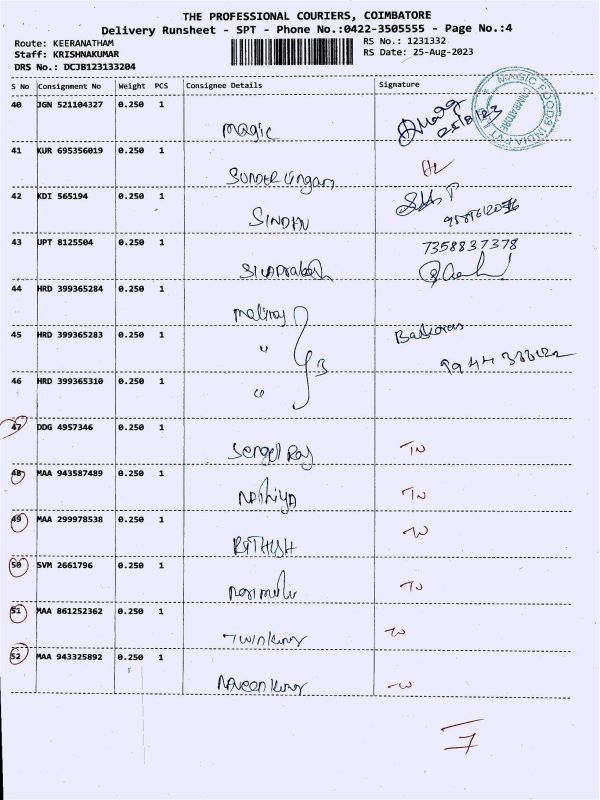 THE PROFESSIONAL COURIERS, COIMBATORE
Delivery Runsheet - SPT - Phone No.:0422-3505555 - Page No.:4
Route: KEERANATHAM
RS No.: 1231332
Staff: KRISHNAKUMAR
RS Date: 25-Aug-2023
DRS No.: DCJB123133204
S No Consignment No Weight PCS Consignee Details Signature
40 JGN 521104327 0.250 1
magic
25/8/23
MAGIC FOODS INDIA PVT LTD
COIMBATORE
41 KUR 695356019 0.250 1
SUNDER
42 KDI 565194 0.250 1
SINDHU
43 UPT 8125504 0.250 1
7358837378
Sivaprakash
44 HRD 399365284 0.250 1
45 HRD 399365283 0.250 1
"
3
Baskaran
46 HRD 399365310 0.250 1
"
47 DDG 4957346 0.250 1
Raj
48 MAA 943587489 0.250 1
NAthiyA
49 MAA 299978538 0.250 1
RITHISH
50 SVM 2661796 0.250 1
51 MAA 861252362 0.250 1
52 MAA 943325892 0.250 1
Naveen kumar
7